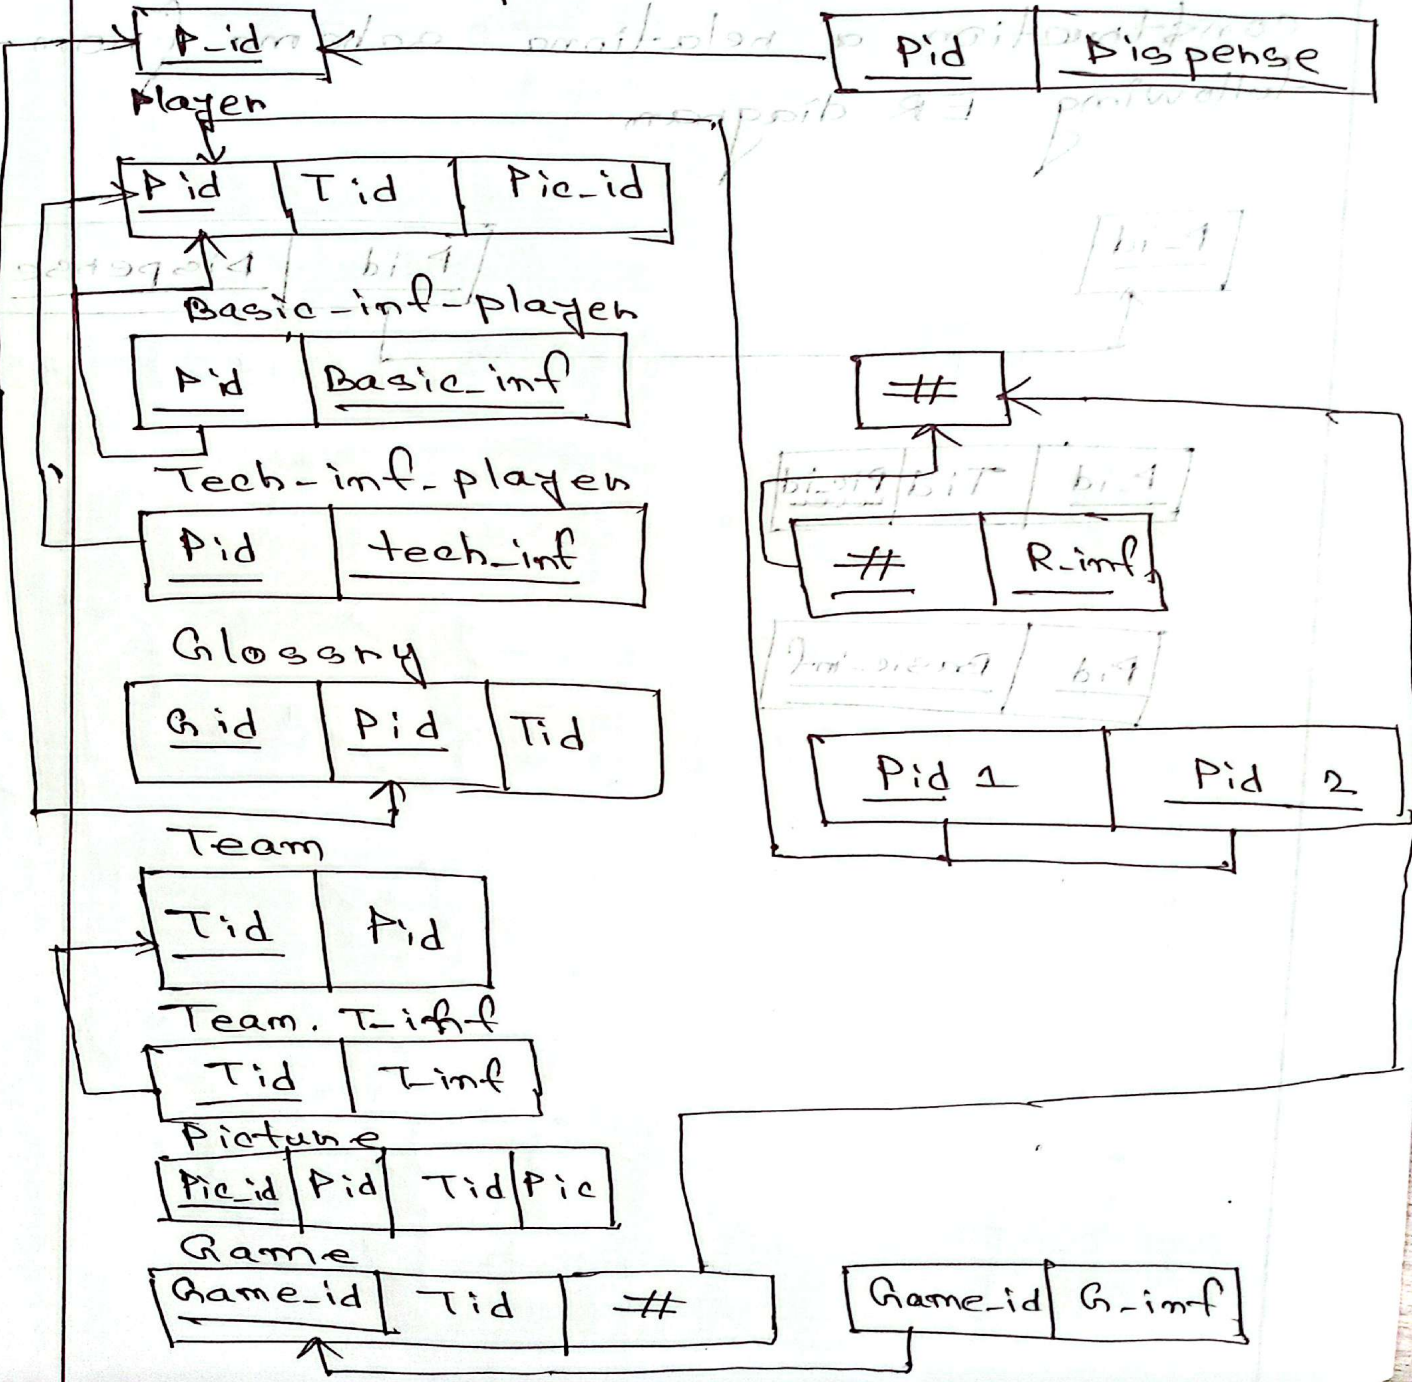 P_id
Pid Dispense
Player
Pid Tid Pic_id
Basic-inf-player
Pid Basic_inf
#
Tech-inf-player
Pid tech_inf
# R_inf
Glossry
Gid Pid Tid
Pid 1 Pid 2
Team
Tid Pid
Team. T-inf
Tid T-inf
Picture
Pic_id Pid Tid Pic
Game
Game_id Tid #
Game_id G_inf